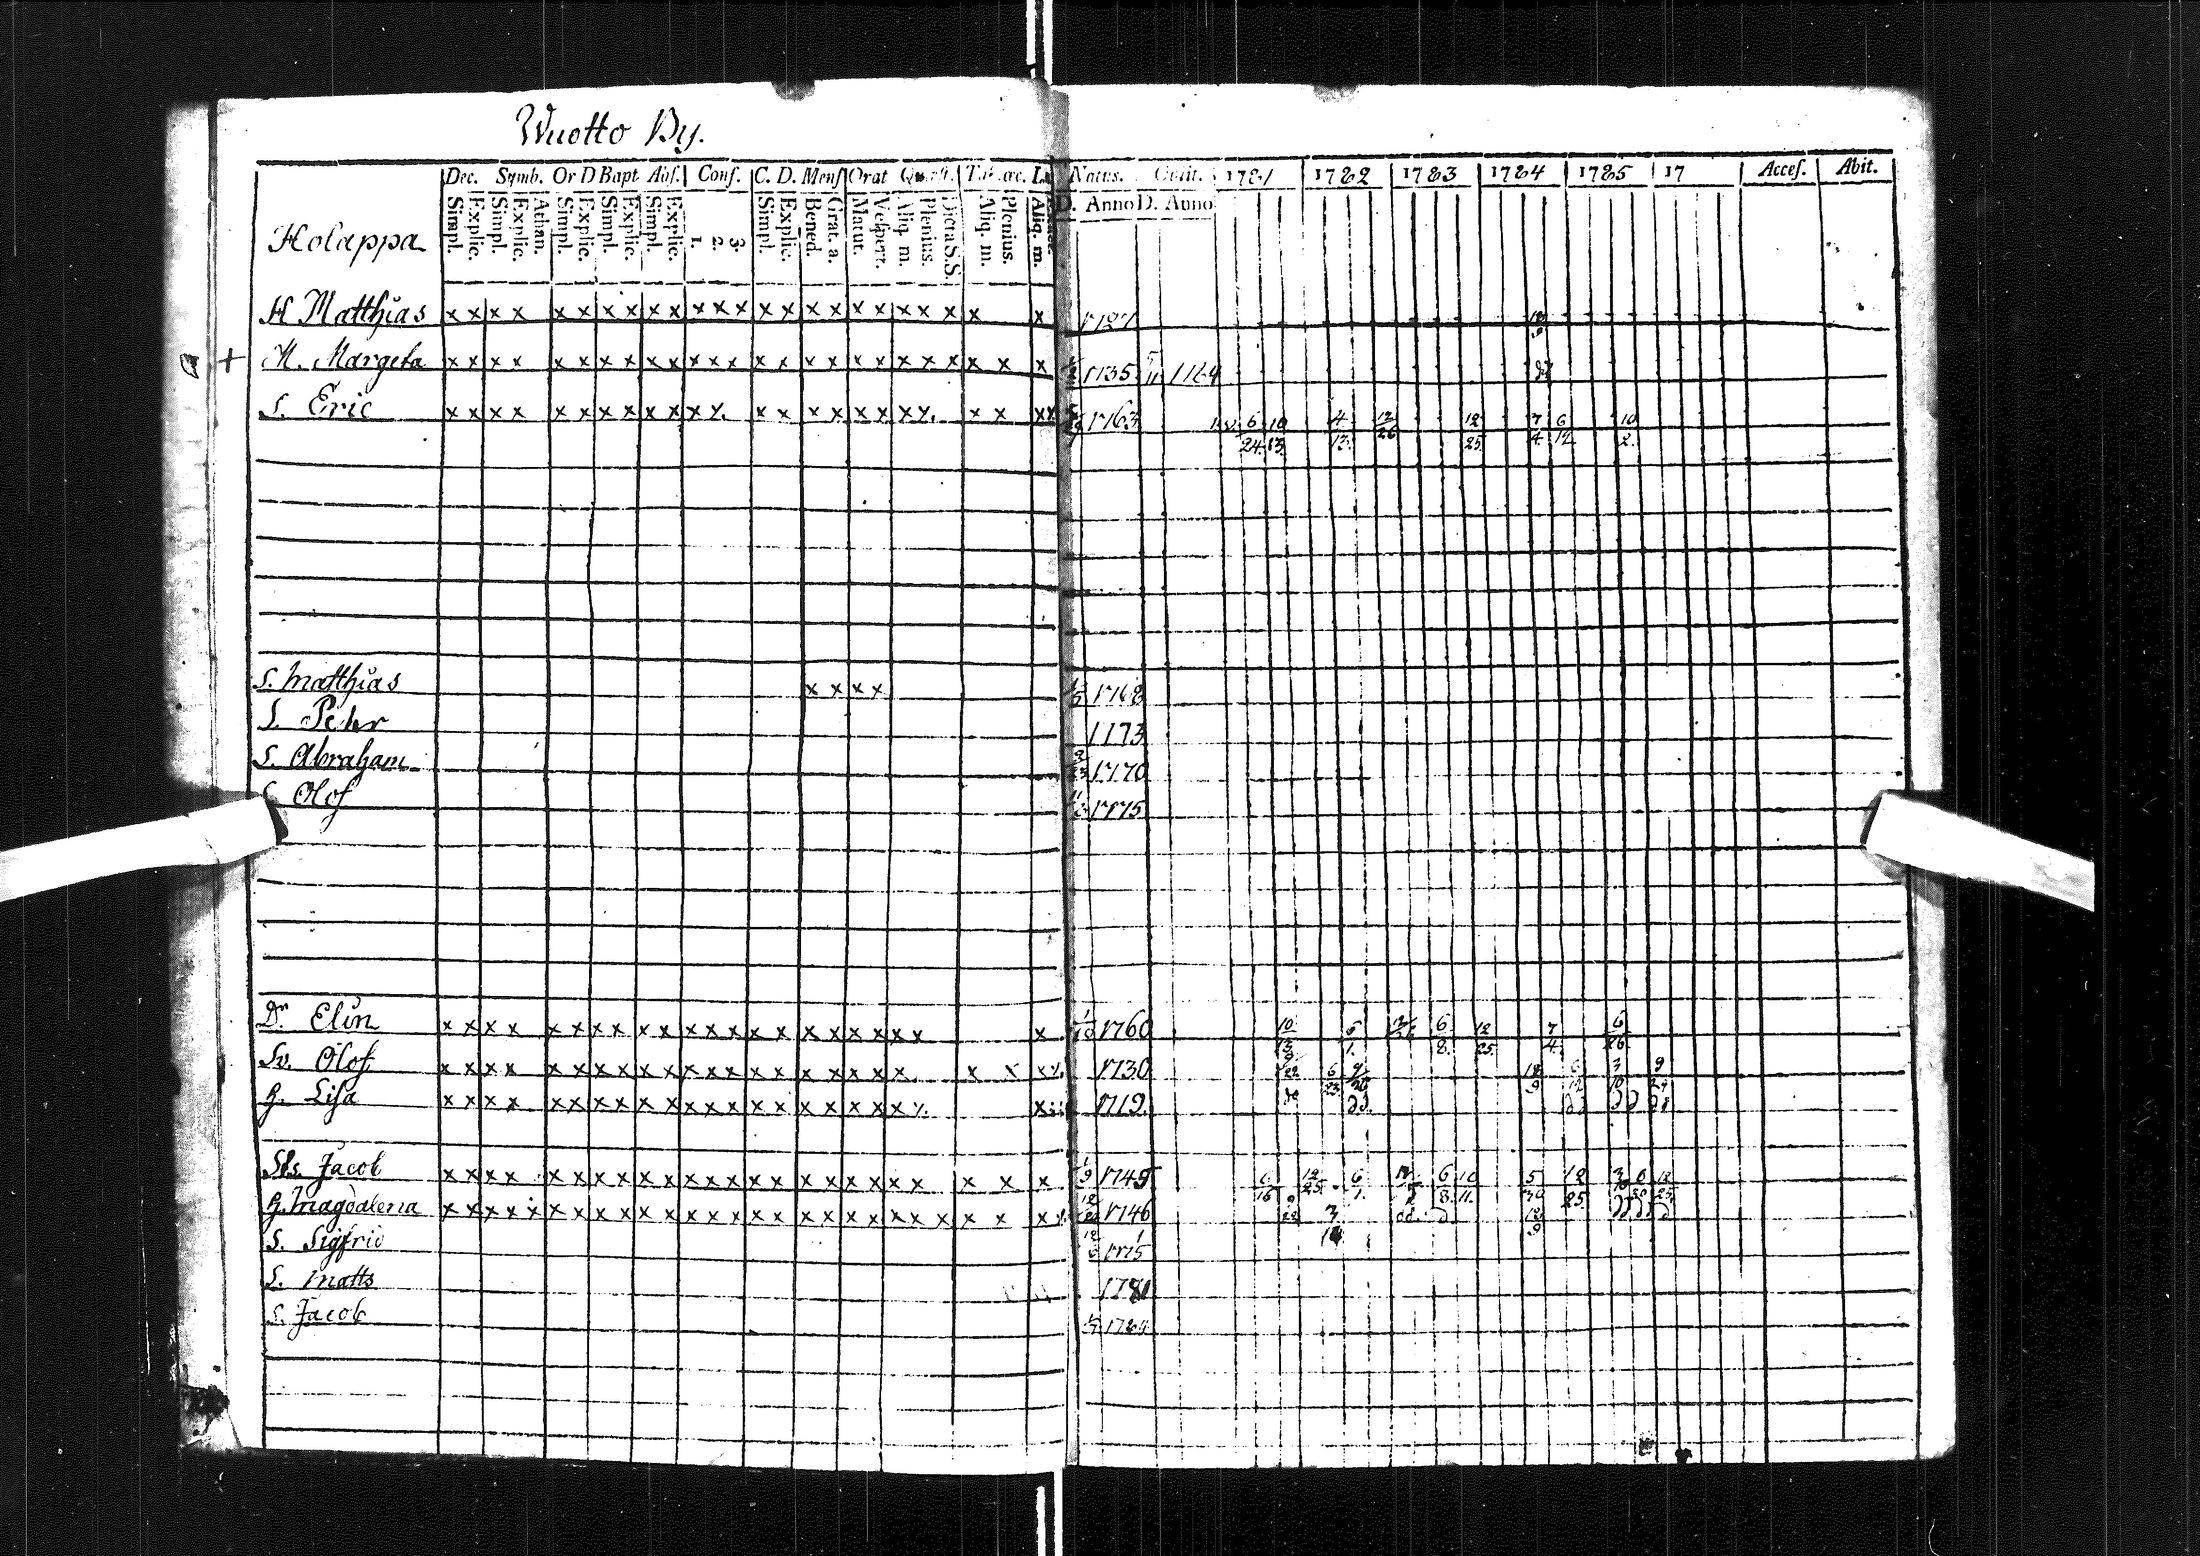 Wuotto By.
Dec. Symb. Or D Bapt Abs. Conf. C. D. Mens Orat Quæst. Tab. œc. Natus. Obiit. 1781 1782 1783 1784 1785 17 Acces. Abit.
Simpl. Explic. Simpl. Explic. Athan. Simpl. Explic. Simpl. Explic. Simpl. Explic. 1. 2. 3. Simpl. Explic. Bened. Grat. a. Matut. Vespert. Aliq. m. Plenius. Dicta S.S. Aliq. m. Plenius. Aliq. m. D. Anno D. Anno
Holappa
H Matthias x x x x x x x x x x x x x x x x x x x x x x x 1727
+ H. Margeta x x x x x x x x x x x x x x x x x x x x x x x x 1735 1784
S. Eric x x x x x x x x x x x x x x x x x x x x x 1763 6/24 10/13 4 12/26 12/25 7/4 6/12 10/2
S. Matthias x x x x 1768
S. Pehr 1773
S. Abraham 1770
S. Olof 1775
Dr Elin x x x x x x x x x x x x x x x x x x x x x 1760 10/13 6/1. 6/8. 12/25 7/4. 6/26
Sv. Olof x x x x x x x x x x x x x x x x x x x x x 1730 6/23 12/9 6/12 3/10 9/27
H. Lisa x x x x x x x x x x x x x x x x x x x 1719.
Jacob x x x x x x x x x x x x x x x x x x x x x x x 1/9 1745 6/16 12/25. 6/1. 6/8 10/11. 5/30 12/25.
H. Magdalena x x x x x x x x x x x x x x x x x x x x x x x 1746 12/9
S. Sigfrid 1775
S. Matts 1781
S. Jacob 1784